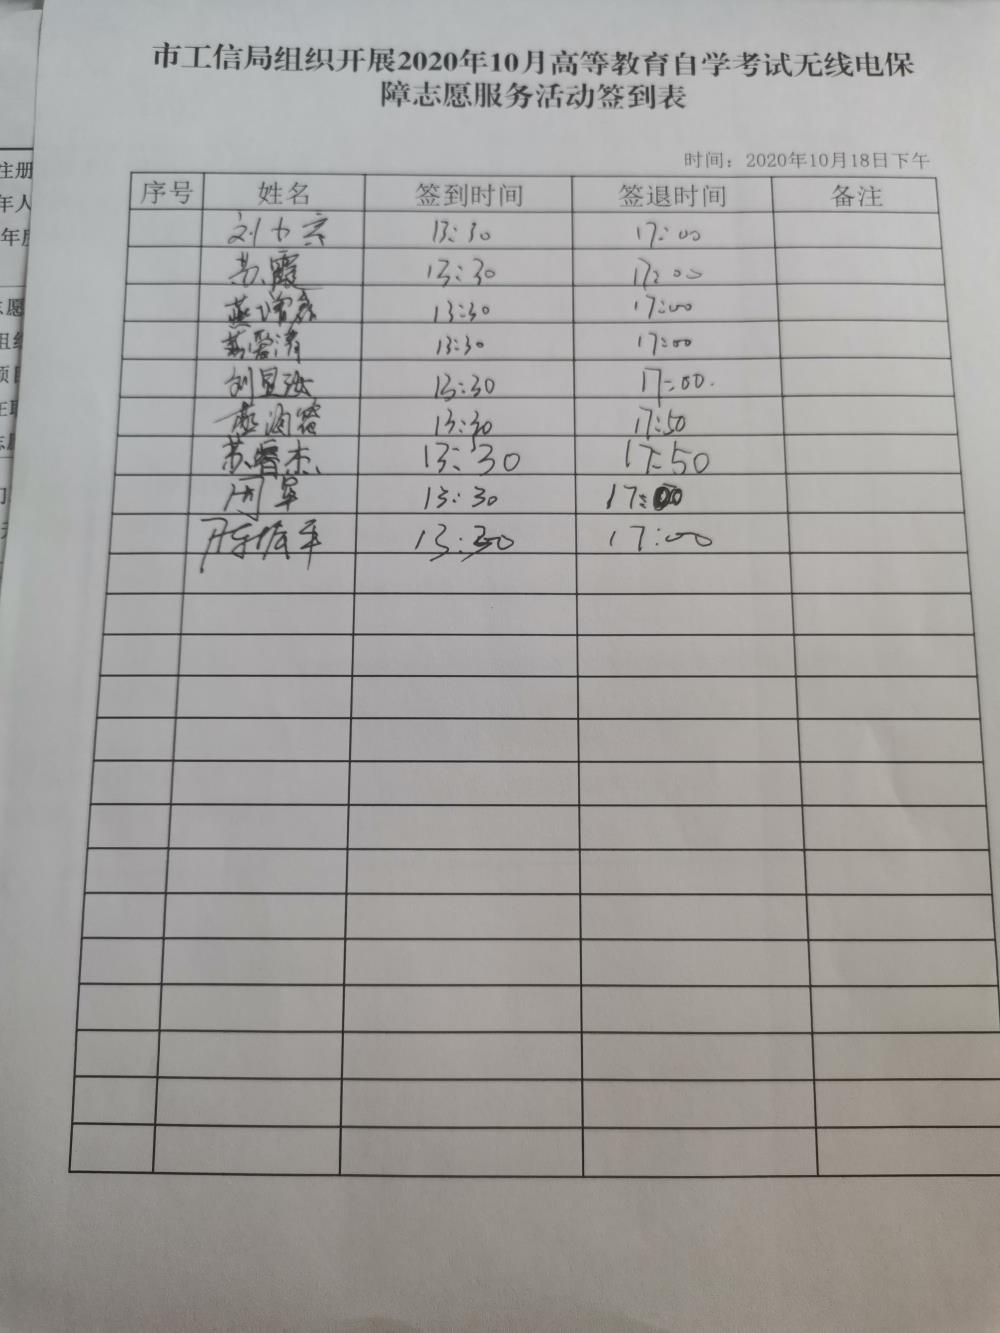 市工信局组织开展2020年10月高等教育自学考试无线电保
障志愿服务活动签到表
时间：2020年10月18日下午
序号 姓名 签到时间 签退时间 备注
刘 13:30 17:00
苏霞 13:30 17:00
13:30 17:00
13:30 17:00
刘 13:30 17:00.
13:30 17:50
苏睿杰 13:30 17:50
周军 13:30 17:00
陈振平 13:30 17:00
注册
年人
年度
志愿
组织
项目